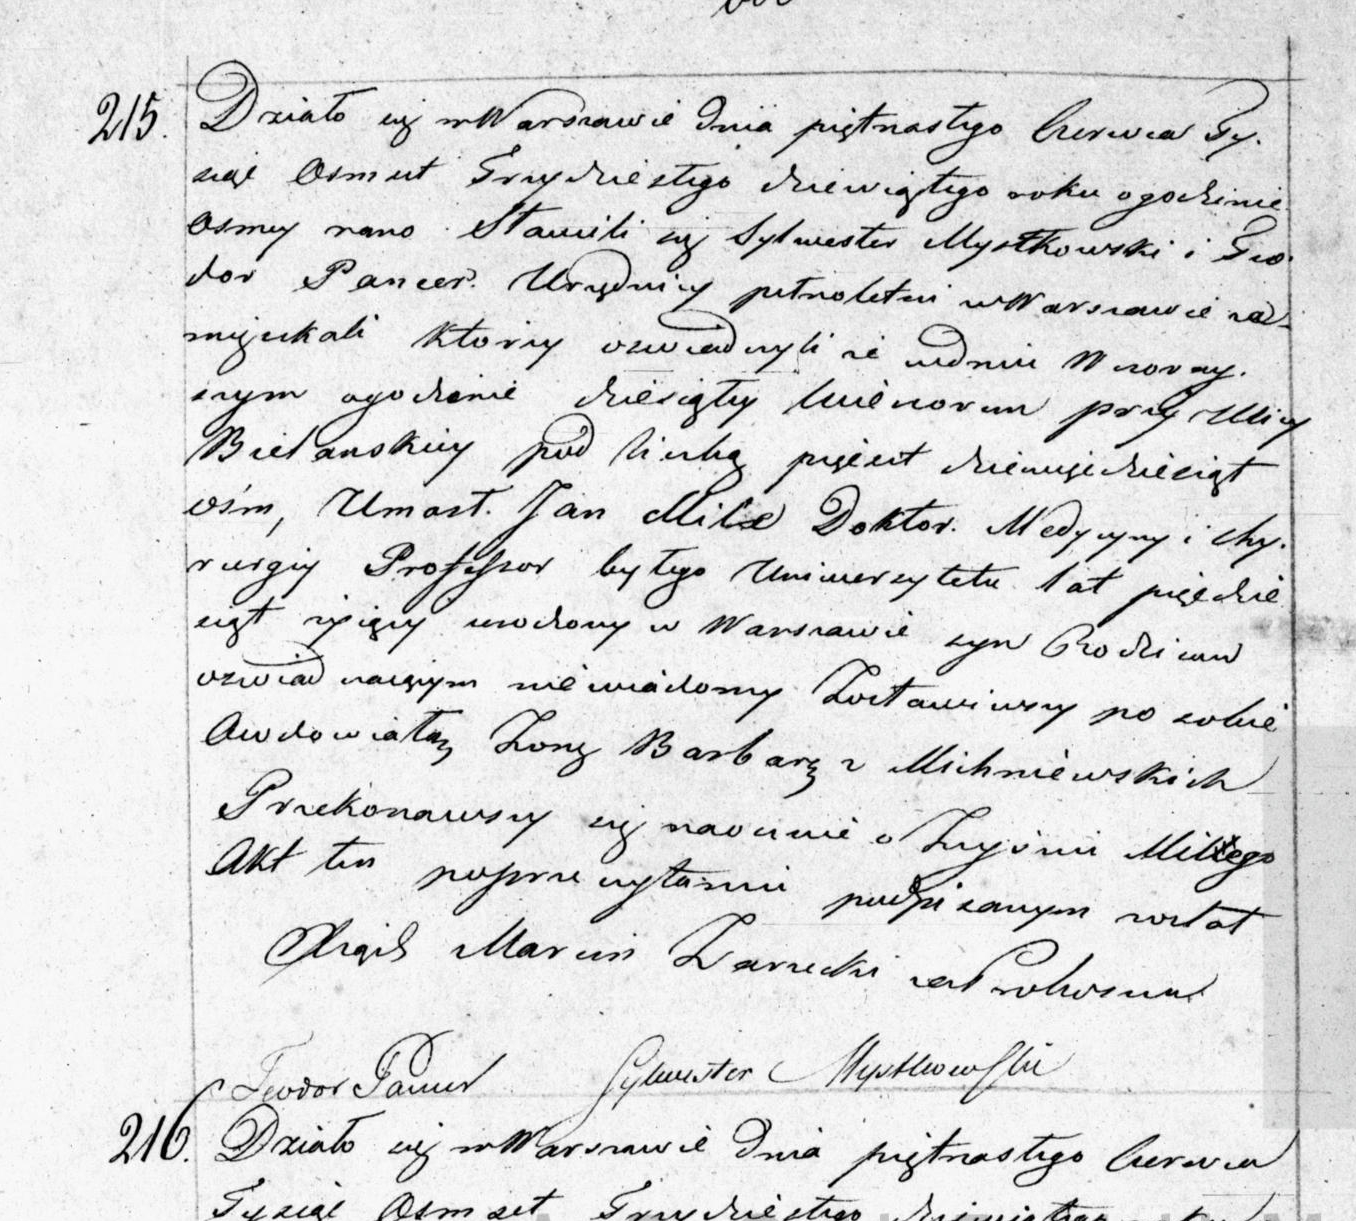 215. Działo się w Warszawie dnia piętnastego Czerwca Ty-
siąc Osmset Trzydziestego dziewiątego roku o godzinie
Osmey rano. Stawili się Sylwester Mystkowski i Teo-
dor Pancer. Urzędnicy pełnoletni w Warszawie za-
mięszkali którzy oswiadczyli że w dniu Wczoray-
szym o godzinie dziesiąty wieczorem przy Ulicy
Bielanskiey pod liczbą pięćset dziewięćdziesiąt
ośm, Umarł. Jan Mile Doktor. Medycyny i Chy-
rurgiy Professor byłego Uniwersytetu lat pięćdzie
siąt żyięcy urodzony w Warszawie syn Rodziców
oswiadczaiącym niewiadomy Zostawiwszy po sobie
Owdowiałą Zonę Barbarę z Michniewskich
Przekonawszy się naocznie o Zeyściu Milego
Akt ten po przeczytaniu podpisanym został
Xiądz Marcin Zarzecki za Proboszcza
Teodor Pancer Sylwester Mystkowski
216. Działo się w Warszawie dnia piętnastego Czerwca
Tysiąc Osmset Trzydziestego dziewiątego